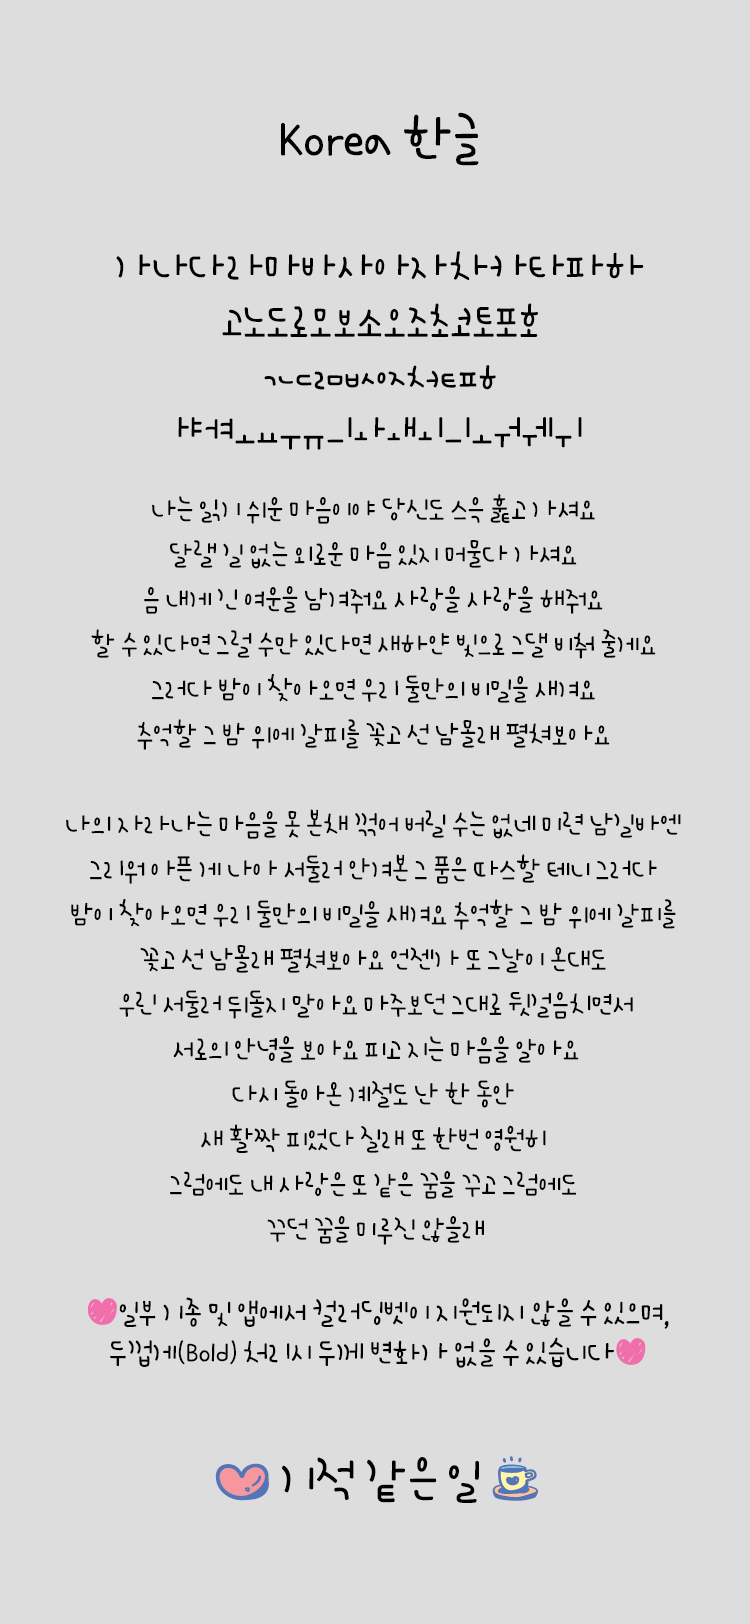 Korea 한글
가나다라마바사아자차카타파하
고노도로모보소오조초코토포호
ㄱㄴㄷㄹㅁㅂㅅㅇㅈㅊㅋㅌㅍㅎ
ㅑㅕㅕㅗㅛㅜㅠㅡㅣㅗㅏㅗㅐㅗㅣㅡㅣㅗㅜㅓㅜㅔㅜㅣ
나는 읽기 쉬운 마음이야 당신도 스윽 훑고 가셔요
달랠 길 없는 외로운 마음 있지 머물다 가셔요
음 내게 긴 여운을 남겨줘요 사랑을 사랑을 해줘요
할 수 있다면 그럴 수만 있다면 새하얀 빛으로 그댈 비춰 줄게요
그러다 밤이 찾아오면 우리 둘만의 비밀을 새겨요
추억할 그 밤 위에 갈피를 꽂고 선 남몰래 펼쳐보아요
나의 자라나는 마음을 못 본채 꺾어 버릴 수는 없네 미련 남길바엔
그리워 아픈 게 나아 서둘러 안겨본 그 품은 따스할 테니 그러다
밤이 찾아오면 우리 둘만의 비밀을 새겨요 추억할 그 밤 위에 갈피를
꽂고 선 남몰래 펼쳐보아요 언젠가 또 그날이 온대도
우린 서둘러 뒤돌지 말아요 마주보던 그대로 뒷걸음치면서
서로의 안녕을 보아요 피고 지는 마음을 알아요
다시 돌아온 계절도 난 한 동안
새 활짝 피었다 질래 또 한번 영원히
그럼에도 내 사랑은 또 같은 꿈을 꾸고 그럼에도
꾸던 꿈을 미루진 않을래
일부 기종 및 앱에서 컬러딩벳이 지원되지 않을 수 있으며,
두껍게(Bold) 처리시 두께 변화가 없을 수 있습니다
기적 같은 일